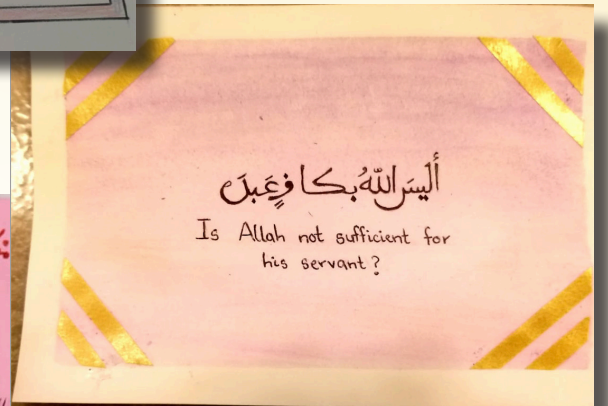 أَلَيْسَ اللّٰهُ بِكَافٍ عَبْدَ
Is Allah not sufficient for
his servant?